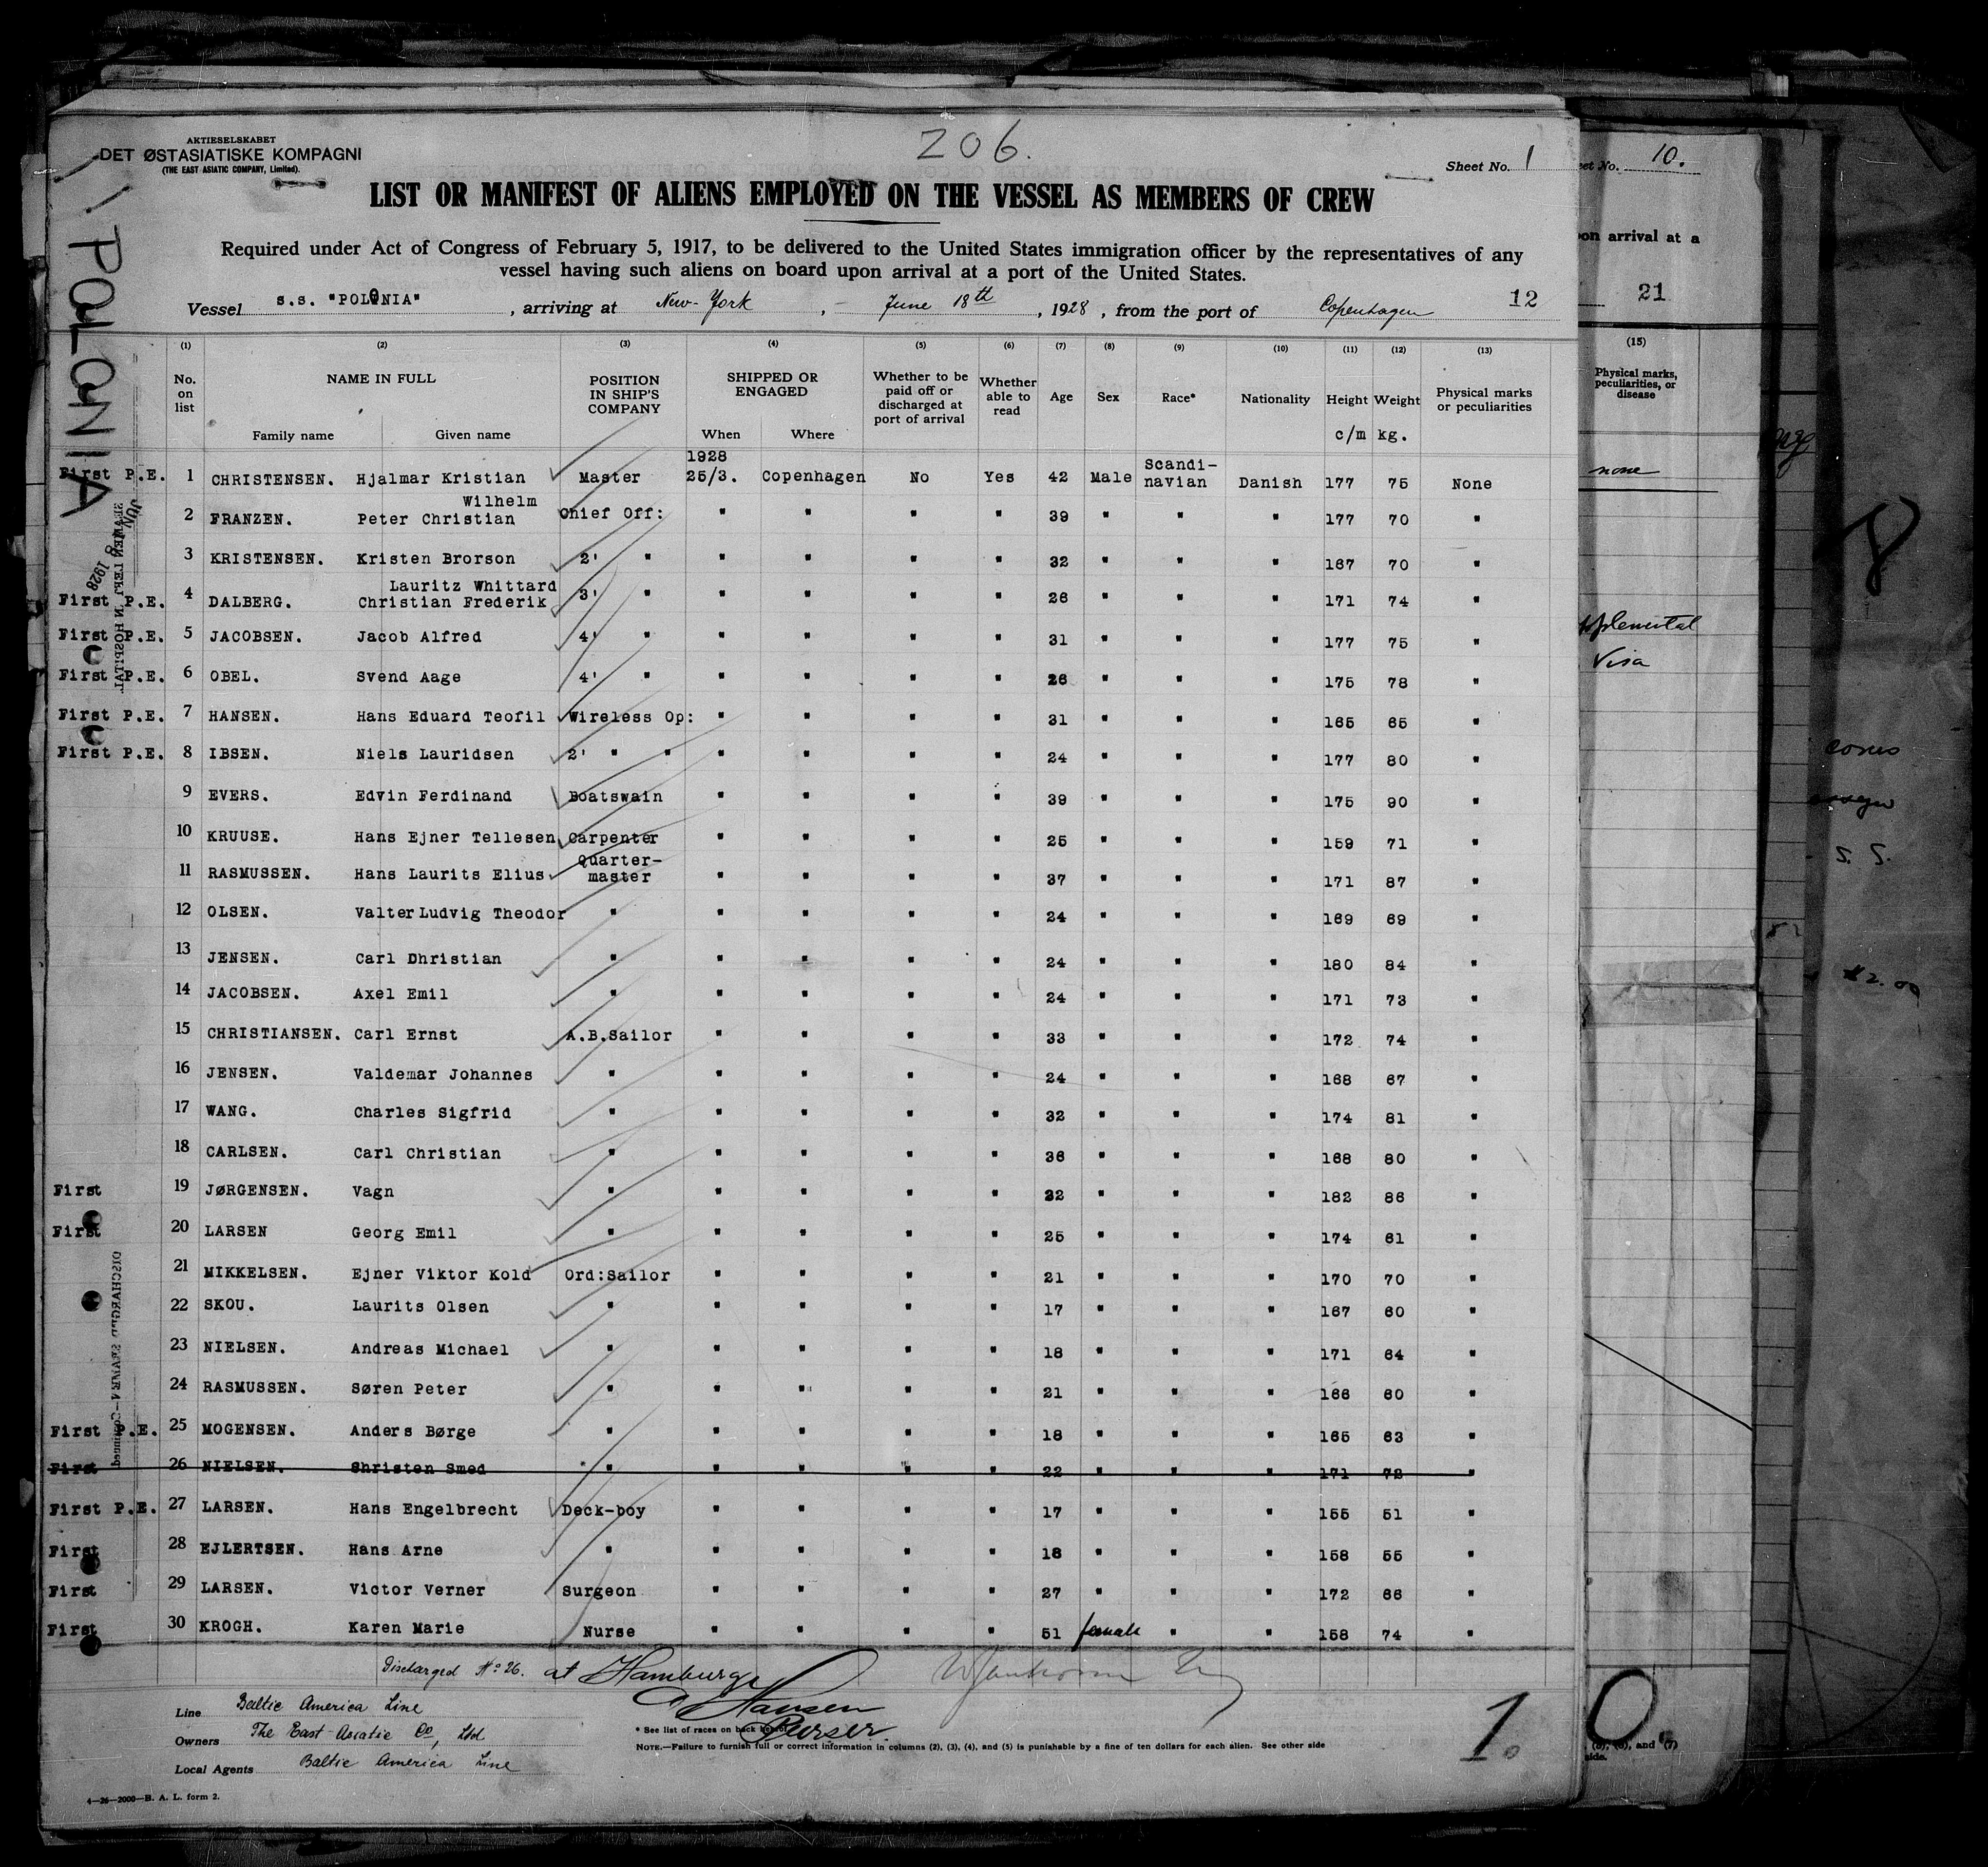 AKTIESELSKABET
DET ØSTASIATISKE KOMPAGNI
(THE EAST ASIATIC COMPANY, Limited).
206.
Sheet No. 1
LIST OR MANIFEST OF ALIENS EMPLOYED ON THE VESSEL AS MEMBERS OF CREW
Required under Act of Congress of February 5, 1917, to be delivered to the United States immigration officer by the representatives of any
vessel having such aliens on board upon arrival at a port of the United States.
Vessel S.S. "POLONIA", arriving at New-York, - June 18th, 1928, from the port of Copenhagen 12
POLONIA
(1) (2) (3) (4) (5) (6) (7) (8) (9) (10) (11) (12) (13)
No. on list NAME IN FULL POSITION IN SHIP'S COMPANY SHIPPED OR ENGAGED Whether to be paid off or discharged at port of arrival Whether able to read Age Sex Race* Nationality Height Weight Physical marks or peculiarities
Family name Given name When Where c/m kg.
1928
First P.E. 1 CHRISTENSEN. Hjalmar Kristian Master 25/3. Copenhagen No Yes 42 Male Scandi-navian Danish 177 75 None
2 FRANZEN. Peter Christian Wilhelm Chief Off: " " " " 39 " " " 177 70 "
3 KRISTENSEN. Kristen Brorson 2' " " " " " 32 " " " 167 70 "
First P.E. 4 DALBERG. Lauritz Whittard Christian Frederik 3' " " " " " 26 " " " 171 74 "
First P.E. 5 JACOBSEN. Jacob Alfred 4' " " " " " 31 " " " 177 75 "
First P.E. 6 OBEL. Svend Aage 4' " " " " " 26 " " " 175 78 "
First P.E. 7 HANSEN. Hans Eduard Teofil Wireless Op: " " " " 31 " " " 165 65 "
First P.E. 8 IBSEN. Niels Lauridsen 2' " " " " " " 24 " " " 177 80 "
9 EVERS. Edvin Ferdinand Boatswain " " " " 39 " " " 175 90 "
10 KRUUSE. Hans Ejner Tellesen Carpenter " " " " 25 " " " 159 71 "
11 RASMUSSEN. Hans Laurits Elius Quarter-master " " " " 37 " " " 171 87 "
12 OLSEN. Valter Ludvig Theodor " " " " " 24 " " " 169 69 "
13 JENSEN. Carl Dhristian " " " " " 24 " " " 180 84 "
14 JACOBSEN. Axel Emil " " " " " 24 " " " 171 73 "
15 CHRISTIANSEN. Carl Ernst A.B.Sailor " " " " 33 " " " 172 74 "
16 JENSEN. Valdemar Johannes " " " " " 24 " " " 168 67 "
17 WANG. Charles Sigfrid " " " " " 32 " " " 174 81 "
18 CARLSEN. Carl Christian " " " " " 36 " " " 168 80 "
First 19 JØRGENSEN. Vagn " " " " " 22 " " " 182 86 "
First 20 LARSEN Georg Emil " " " " " 25 " " " 174 61 "
21 MIKKELSEN. Ejner Viktor Kold Ord:Sailor " " " " 21 " " " 170 70 "
22 SKOU. Laurits Olsen " " " " " 17 " " " 167 60 "
23 NIELSEN. Andreas Michael " " " " " 18 " " " 171 64 "
24 RASMUSSEN. Søren Peter " " " " " 21 " " " 166 60 "
First P.E. 25 MOGENSEN. Anders Børge " " " " " 18 " " " 165 63 "
First 26 NIELSEN. Christen Smed " " " " " 22 " " " 171 72 "
First P.E. 27 LARSEN. Hans Engelbrecht Deck-boy " " " " 17 " " " 155 51 "
First 28 EJLERTSEN. Hans Arne " " " " " 18 " " " 158 55 "
First 29 LARSEN. Victor Verner Surgeon " " " " 27 " " " 172 66 "
First 30 KROGH. Karen Marie Nurse " " " " 51 female " " 158 74 "
Discharged No 26. at Hamburg
Hansen
Purser.
Line Baltic America Line
Owners The East-Asiatic Co, Ltd
Local Agents Baltic America Line
* See list of races on back hereof.
NOTE.—Failure to furnish full or correct information in columns (2), (3), (4), and (5) is punishable by a fine of ten dollars for each alien. See other side
4—26—2000—B. A. L. form 2.
1.
JUN 18 1928
SEAMEN LEFT IN HOSPITAL
No. 10.
on arrival at a
21
(15)
Physical marks,
peculiarities, or
disease
none
Visa
and (7)
side.
$2.00